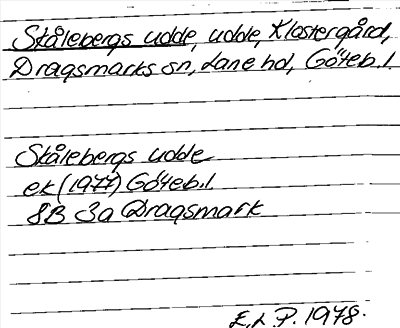 Skålebergs udde, udde, Klostergård,
Dragsmarks sn, Lane hd, Göteb.l.
Skålebergs udde
ek (1977) Göteb.l.
8B 3a Dragsmark
E.L.P. 1978.